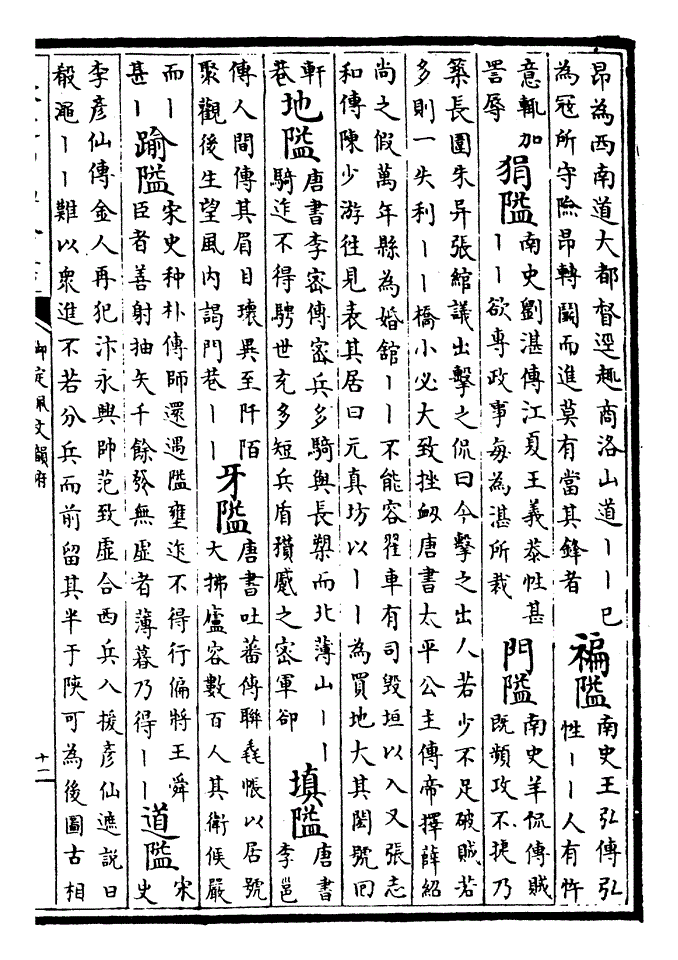 昂為西南道大都督選趣商洛山道丨丨已
為冦所守隂昂轉鬭而進莫有當其鋒者
褊隘
南史王弘傳弘
性丨丨人有忤
意輒加
詈辱
狷隘
南史劉湛傳江夏王義恭性甚
丨丨欲專政事每為湛所裁
門隘
南史羊侃傳賊
既頻攻不捷乃
築長圍朱异張綰議出擊之侃曰今擊之出人若少不足破賊若
多則一失利丨丨橋小必大致挫衂唐書太平公主傳帝擇薛紹
尚之假萬年縣為婚舘丨丨不能容翟車有司毀垣以入又張志
和傳陳少游往見表其居曰元真坊以丨丨為買地大其閎號回
軒
巷
地隘
唐書李密傳密兵多騎與長槊而北薄山丨丨
騎迮不得騁世充多短兵盾䂎蹙之密軍卻
填隘
唐書
李邕
傳人間傳其眉目瓌異至阡陌
聚觀後生望風内謁門巷丨丨
牙隘
唐書吐蕃傳聯毳帳以居號
大拂廬容數百人其衛候嚴
而丨
甚丨
踰隘
宋史种朴傳師還遇隘壅迮不得行偏將王舜
臣者善射抽矢千餘發無虚者薄暮乃得丨丨
道隘
宋
史
李彦仙傳金人再犯汴永興帥范致虚合西兵入援彦仙遮說曰
殽澠丨丨難以衆進不若分兵而前留其半于陜可為後圖古相
御定佩文韻府
十二